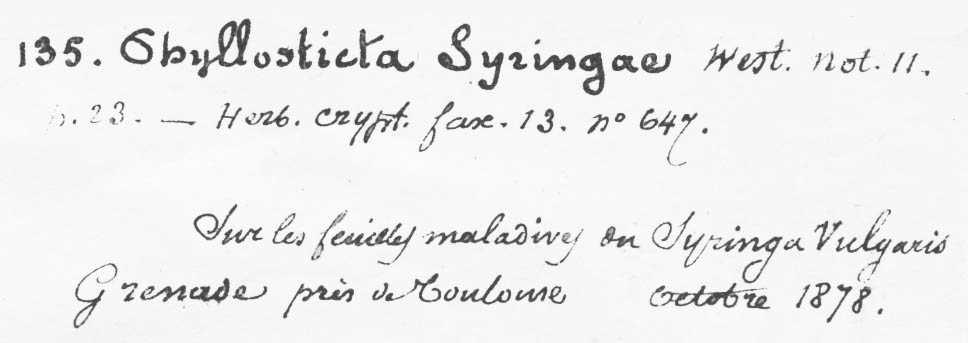 135. Phyllosticta Syringae West. not. 11.
p. 23. — Herb. crypt. fasc. 13. n° 647.
Sur les feuilles maladives du Syringa Vulgaris
Grenade près de Toulouse octobre 1878.